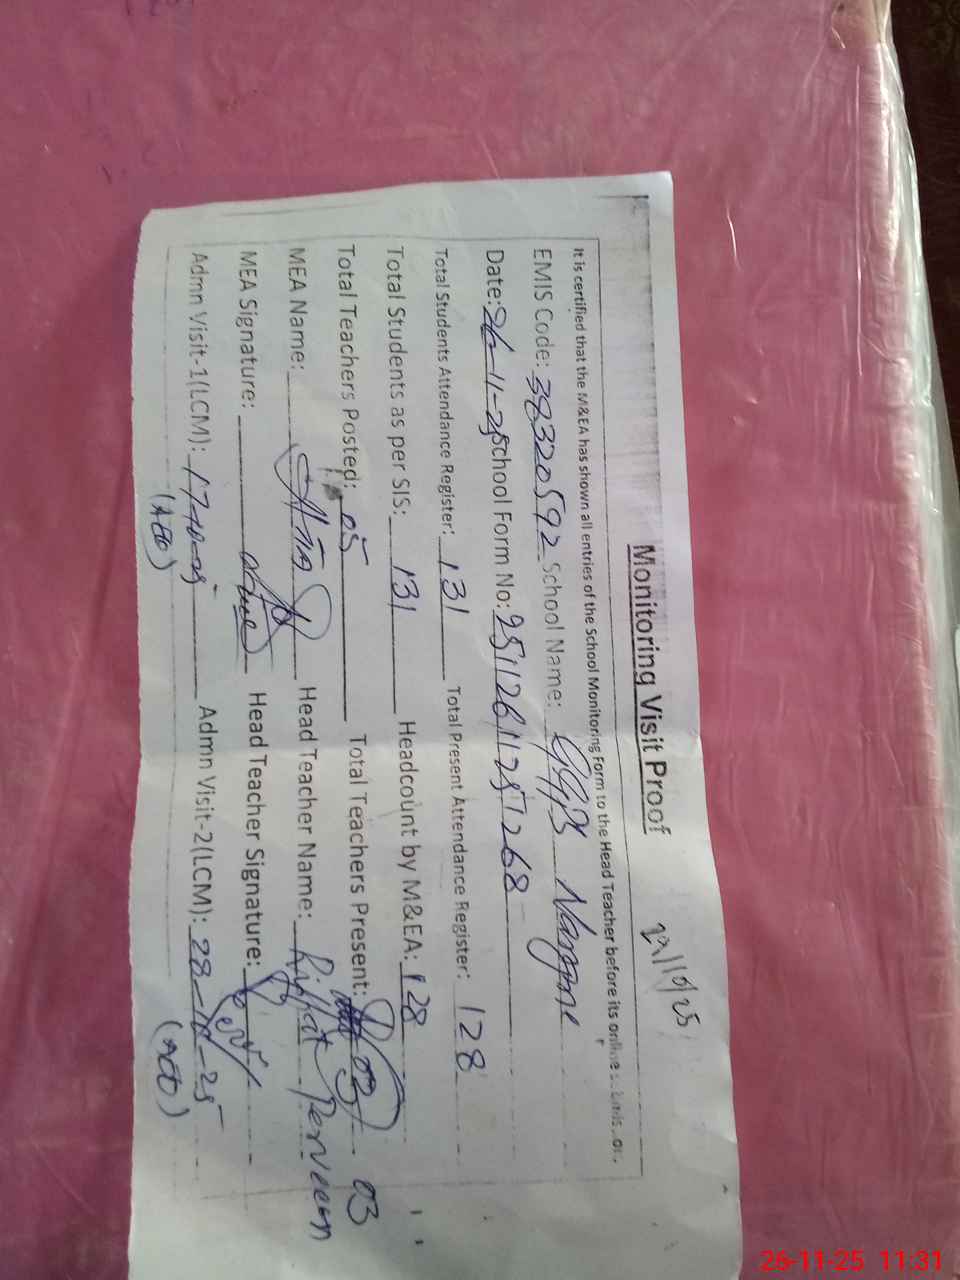 Monitoring Visit Proof
It is certified that the M&EA has shown all entries of the School Monitoring Form to the Head Teacher before its online
EMIS Code: 38320592 School Name: GGPS
Date: 26-11-25 School Form No: 251126112571268
Total Students Attendance Register: 131 Total Present Attendance Register: 128
Total Students as per SIS: 131 Headcount by M&EA: 128
Total Teachers Posted: 05 Total Teachers Present: 03 03
MEA Name: Head Teacher Name: Riffat Perveen
MEA Signature: Head Teacher Signature:
Admn Visit-1(LCM): 17-10-25 Admn Visit-2(LCM): 28-10-25
(AEO) (AEO)
26-11-25 11:31